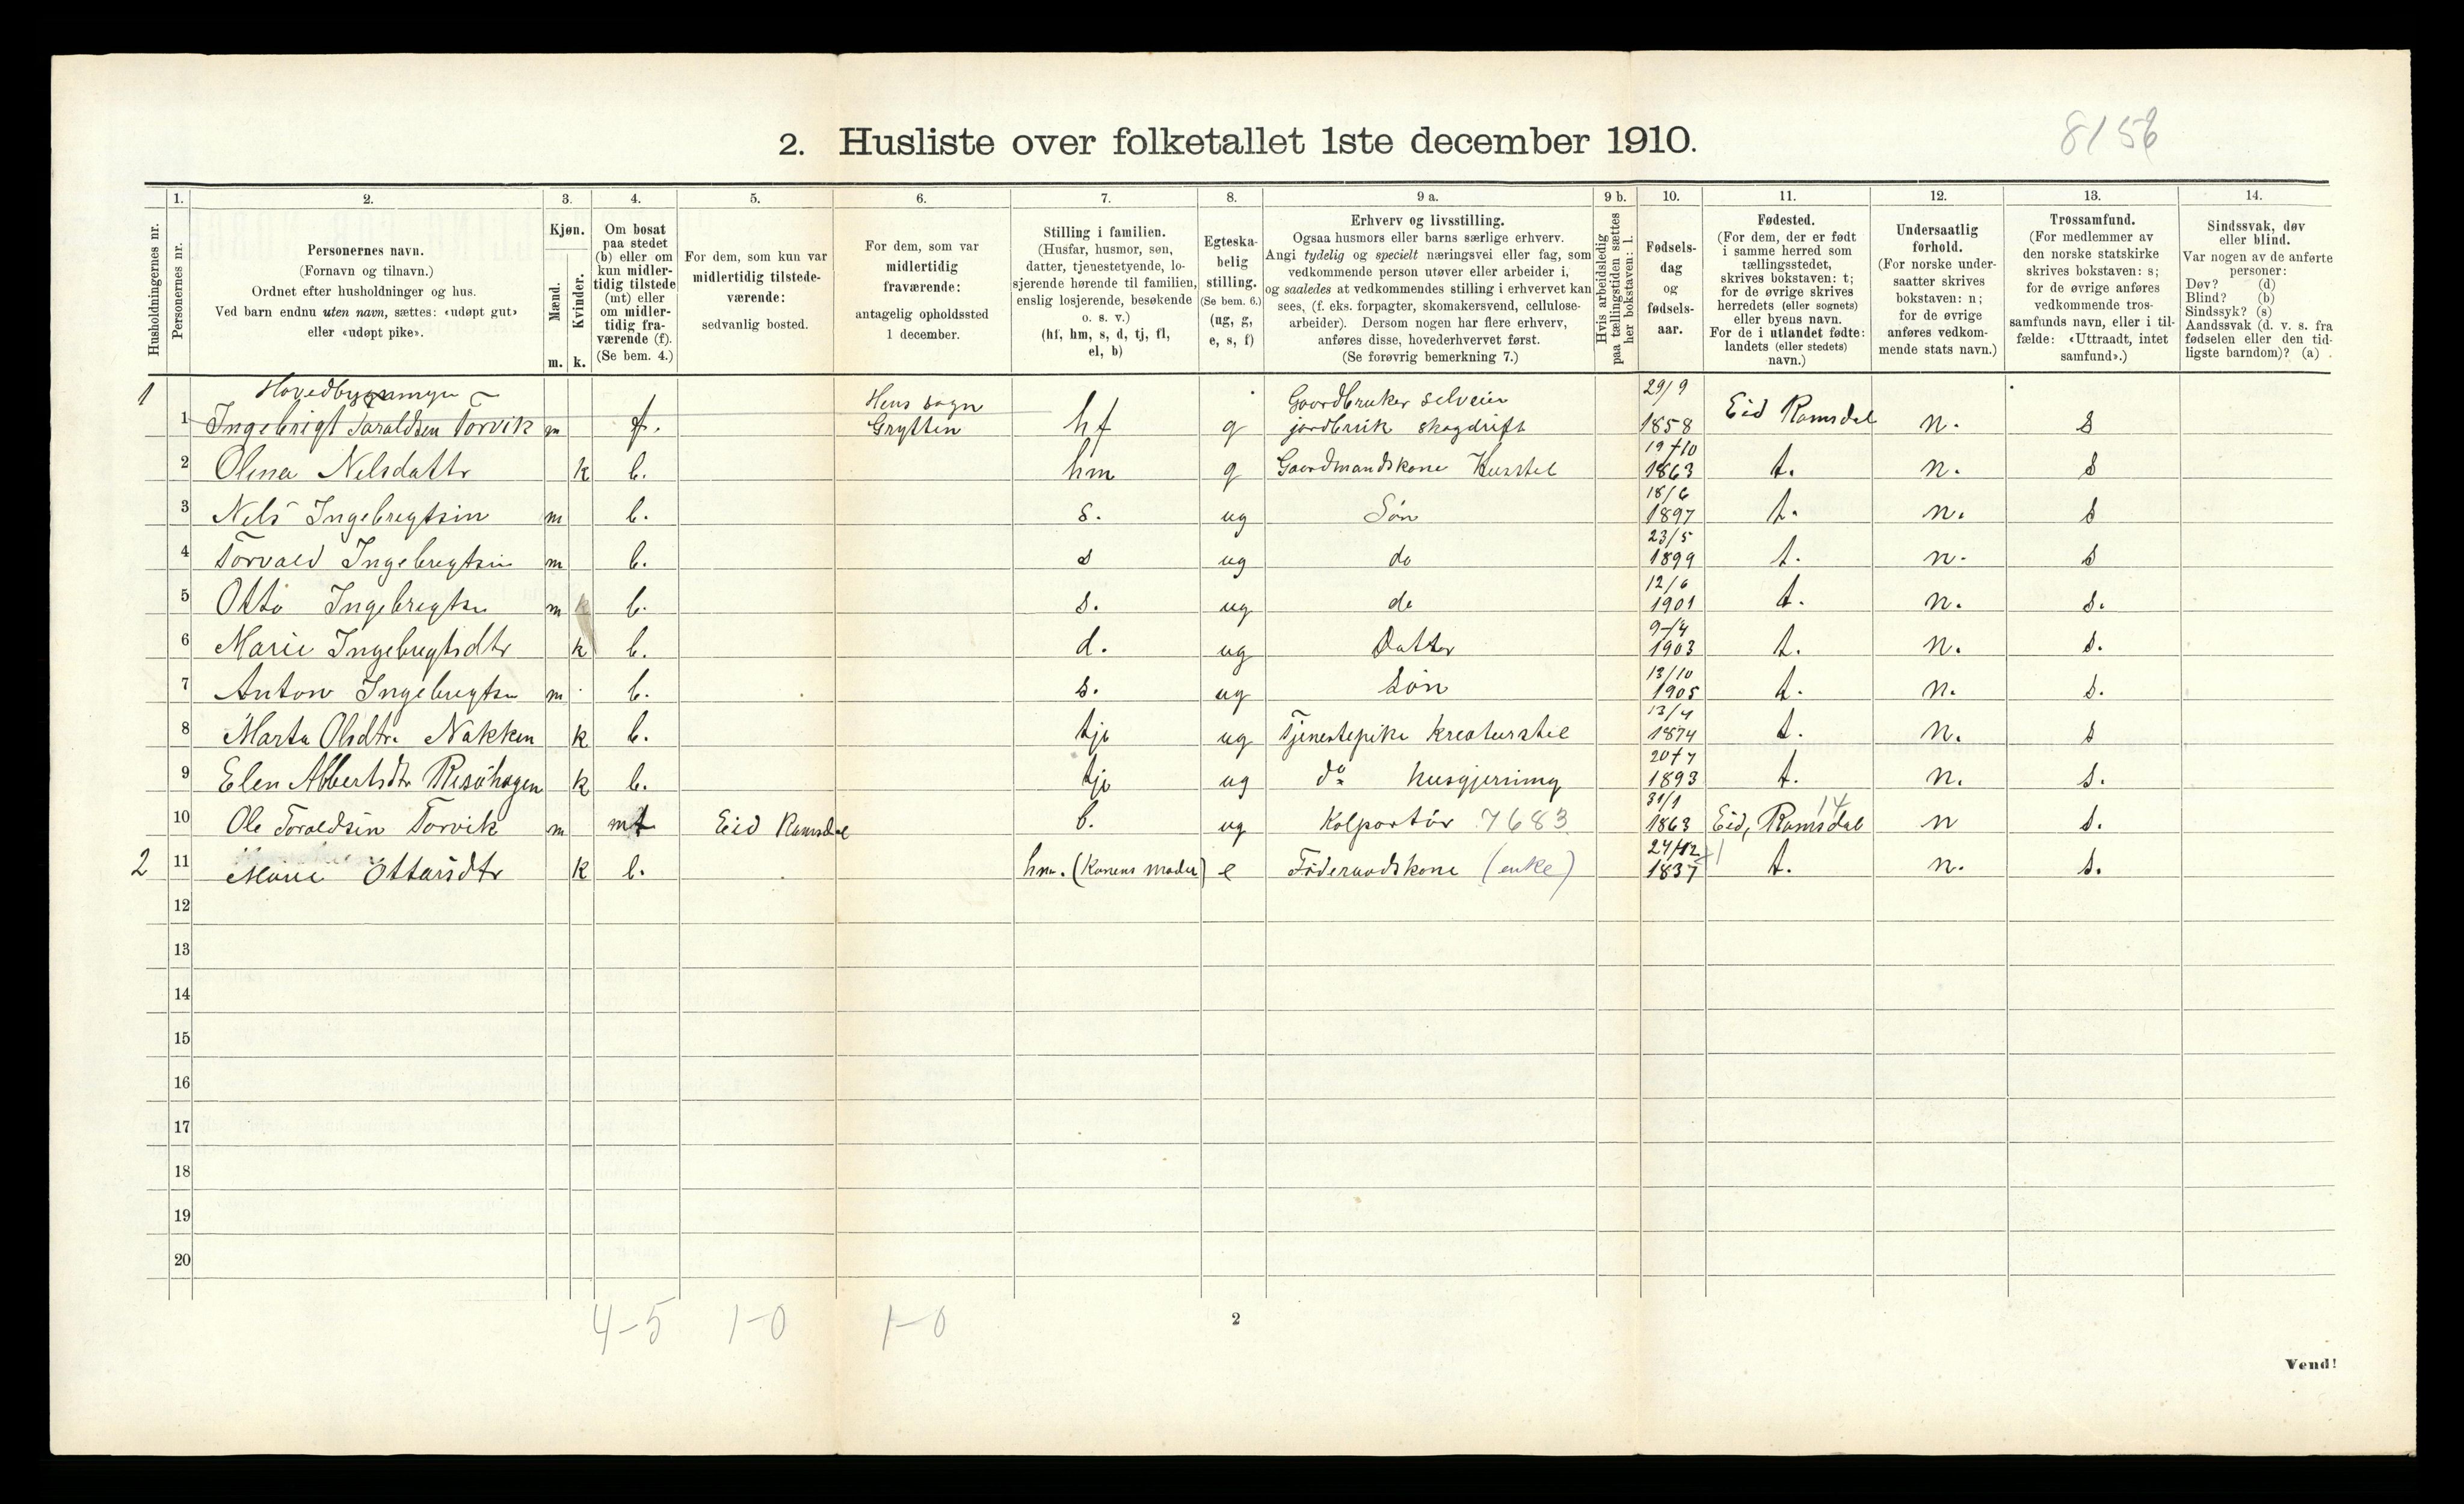 2. Husliste over folketallet 1ste december 1910.
8156
Husholdningernes nr.
1.
Personernes nr.
2.
Personernes navn.
(Fornavn og tilnavn.)
Ordnet efter husholdninger og hus.
Ved barn endnu uten navn, sættes: «udøpt gut»
eller «udøpt pike».
3.
Kjøn.
Mænd.
Kvinder.
m. k.
4.
Om bosat
paa stedet
(b) eller om
kun midler-
tidig tilstede
(mt) eller
om midler-
tidig fra-
værende (f).
(Se bem. 4.)
5.
For dem, som kun var
midlertidig tilstede-
værende:
sedvanlig bosted.
6.
For dem, som var
midlertidig
fraværende:
antagelig opholdssted
1 december.
7.
Stilling i familien.
(Husfar, husmor, søn,
datter, tjenestetyende, lo-
sjerende hørende til familien,
enslig losjerende, besøkende
o. s. v.)
(hf, hm, s, d, tj, fl,
el, b)
8.
Egteska-
belig
stilling.
(Se bem. 6.)
(ug, g,
e, s, f)
9 a.
Erhverv og livsstilling.
Ogsaa husmors eller barns særlige erhverv.
Angi tydelig og specielt næringsvei eller fag, som
vedkommende person utøver eller arbeider i,
og saaledes at vedkommendes stilling i erhvervet kan
sees, (f. eks. forpagter, skomakersvend, cellulose-
arbeider). Dersom nogen har flere erhverv,
anføres disse, hovederhvervet først.
(Se forøvrig bemerkning 7.)
9 b.
Hvis arbeidsledig
paa tællingstiden sættes
her bokstaven: l.
10.
Fødsels-
dag
og
fødsels-
aar.
11.
Fødested.
(For dem, der er født
i samme herred som
tællingsstedet,
skrives bokstaven: t;
for de øvrige skrives
herredets (eller sognets)
eller byens navn.
For de i utlandet fødte:
landets (eller stedets)
navn.)
12.
Undersaatlig
forhold.
(For norske under-
saatter skrives
bokstaven: n;
for de øvrige
anføres vedkom-
mende stats navn.)
13.
Trossamfund.
(For medlemmer av
den norske statskirke
skrives bokstaven: s;
for de øvrige anføres
vedkommende tros-
samfunds navn, eller i til-
fælde: «Uttraadt, intet
samfund».)
14.
Sindssvak, døv
eller blind.
Var nogen av de anførte
personer:
Døv? (d)
Blind? (b)
Sindssyk? (s)
Aandssvak (d. v. s. fra
fødselen eller den tid-
ligste barndom)? (a)
Hens sogn Gaardbruker selveier 29/9
1 1 Ingebrigt Taraldsen Torvik m f. Grytten hf g jordbruk skogdrift 1858 Eid Romsdal n. s
19/10
2 Olena Nelsdattr k b. hm g Gaardmandskone Husstel 1863 t. n. s
18/6
3 Nels Ingebregtsen m b. s. ug Søn 1897 t. n. s
23/5
4 Torvald Ingebregtsen m b. s ug do 1899 t. n. s
12/6
5 Otto Ingebregtsn m b. s. ug do 1901 t. n. s.
9/4
6 Marie Ingebregtsdtr k b. d. ug Datter 1903 t. n. s.
13/10
7 Anton Ingebregtsn m b. s. ug Søn 1905 t. n. s.
13/4
8 Marta Olsdtr. Nakken k b. tje ug Tjenestepike kreaturstel 1874 t. n. s
20/7
9 Elen Albertsdtr Risøhagen k b. tje ug do husgjerning 1893 t. n. s.
31/1 14
10 Ole Toraldsen Torvik m mt Eid Romsdal b. ug Kolportør 7683 1863 Eid, Romsdal n s.
24/12
2 11 Marie Ottarsdtr k b. hm. (Konens moder) e Føderaadskone (enke) 1837 t. n. s.
12
13
14
15
16
17
18
19
20
4-5 1-0 1-0
2
Vend!